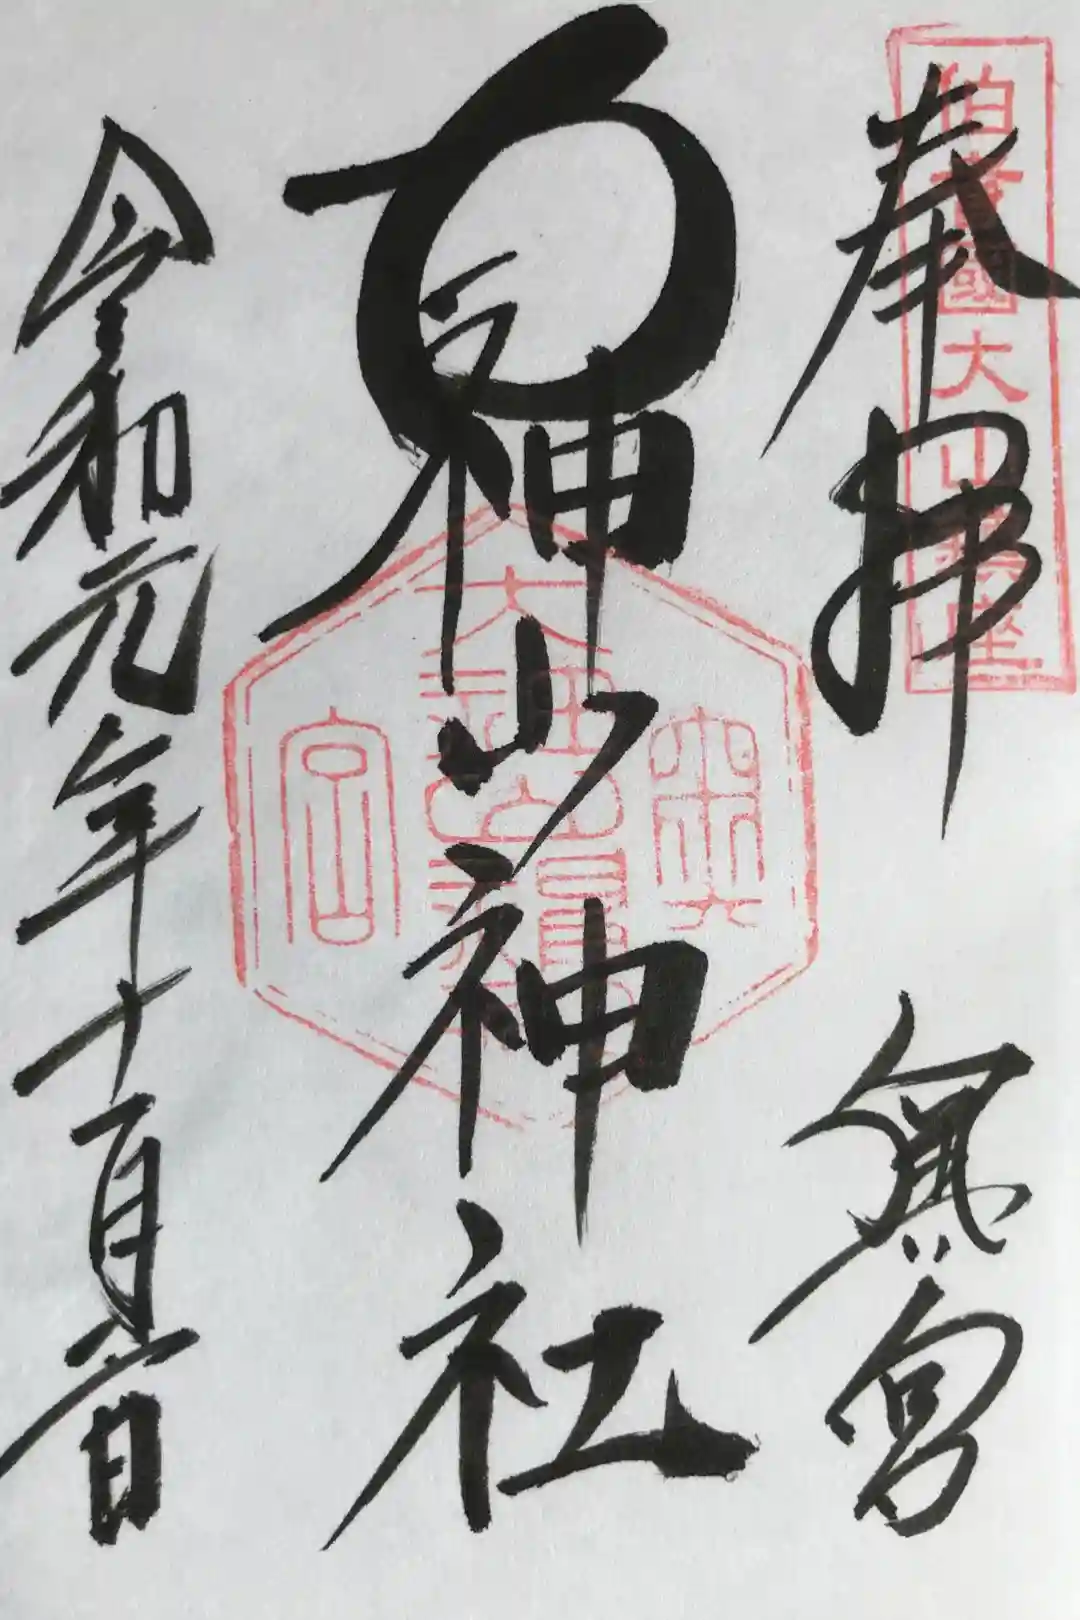 伯耆國大山鎮座
奉拝 奥宮
大神山神社
大神山神社
奥
宮
令和元年十一月六日